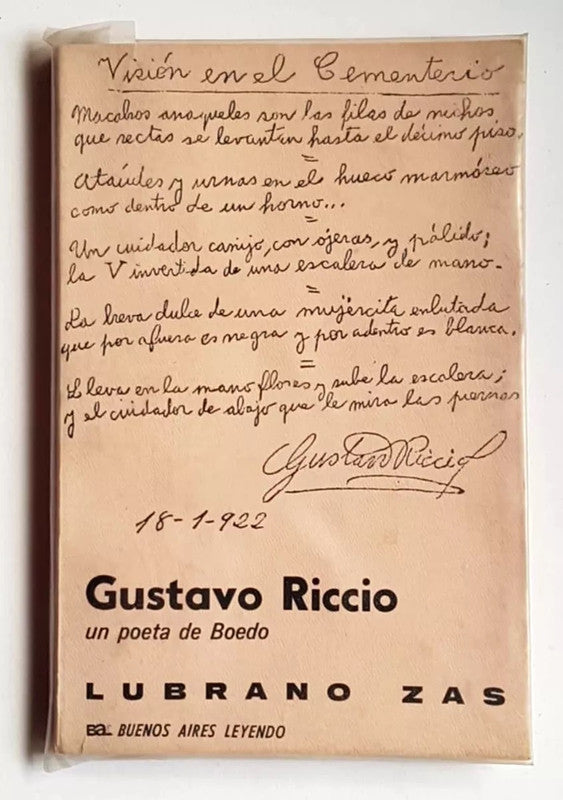 Visión en el Cementerio
Macabros anaqueles son las filas de nichos
que rectas se levantan hasta el décimo piso.
=
Ataúdes y urnas en el hueco marmóreo
como dentro de un horno...
=
Un cuidador canijo, con ojeras, y pálido;
la V invertida de una escalera de mano.
=
La breva dulce de una mujercita enlutada
que por afuera es negra y por adentro es blanca.
=
Lleva en la mano flores y sube la escalera;
y el cuidador de abajo que le mira las piernas
Gustavo Riccio
18-1-922
Gustavo Riccio
un poeta de Boedo
LUBRANO ZAS
BAL BUENOS AIRES LEYENDO